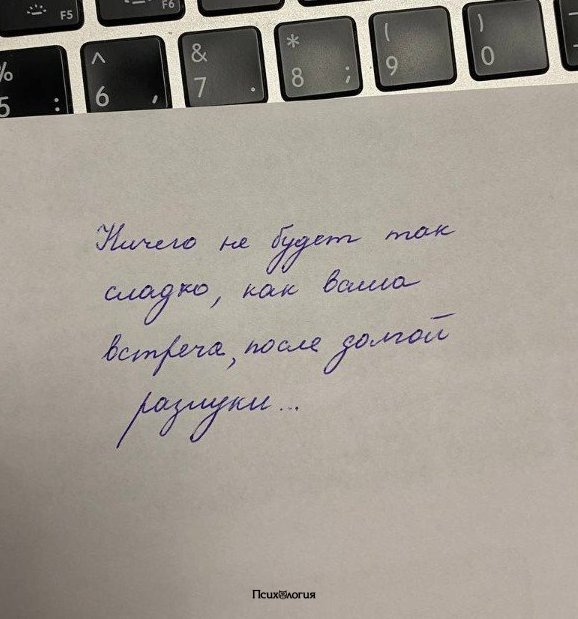 F5
F6
%
5 :
^
6 ,
&
7 .
*
8 ;
(
9
)
0
Ничего не будет так
сладко, как ваша
встреча, после долгой
разлуки...
Психология